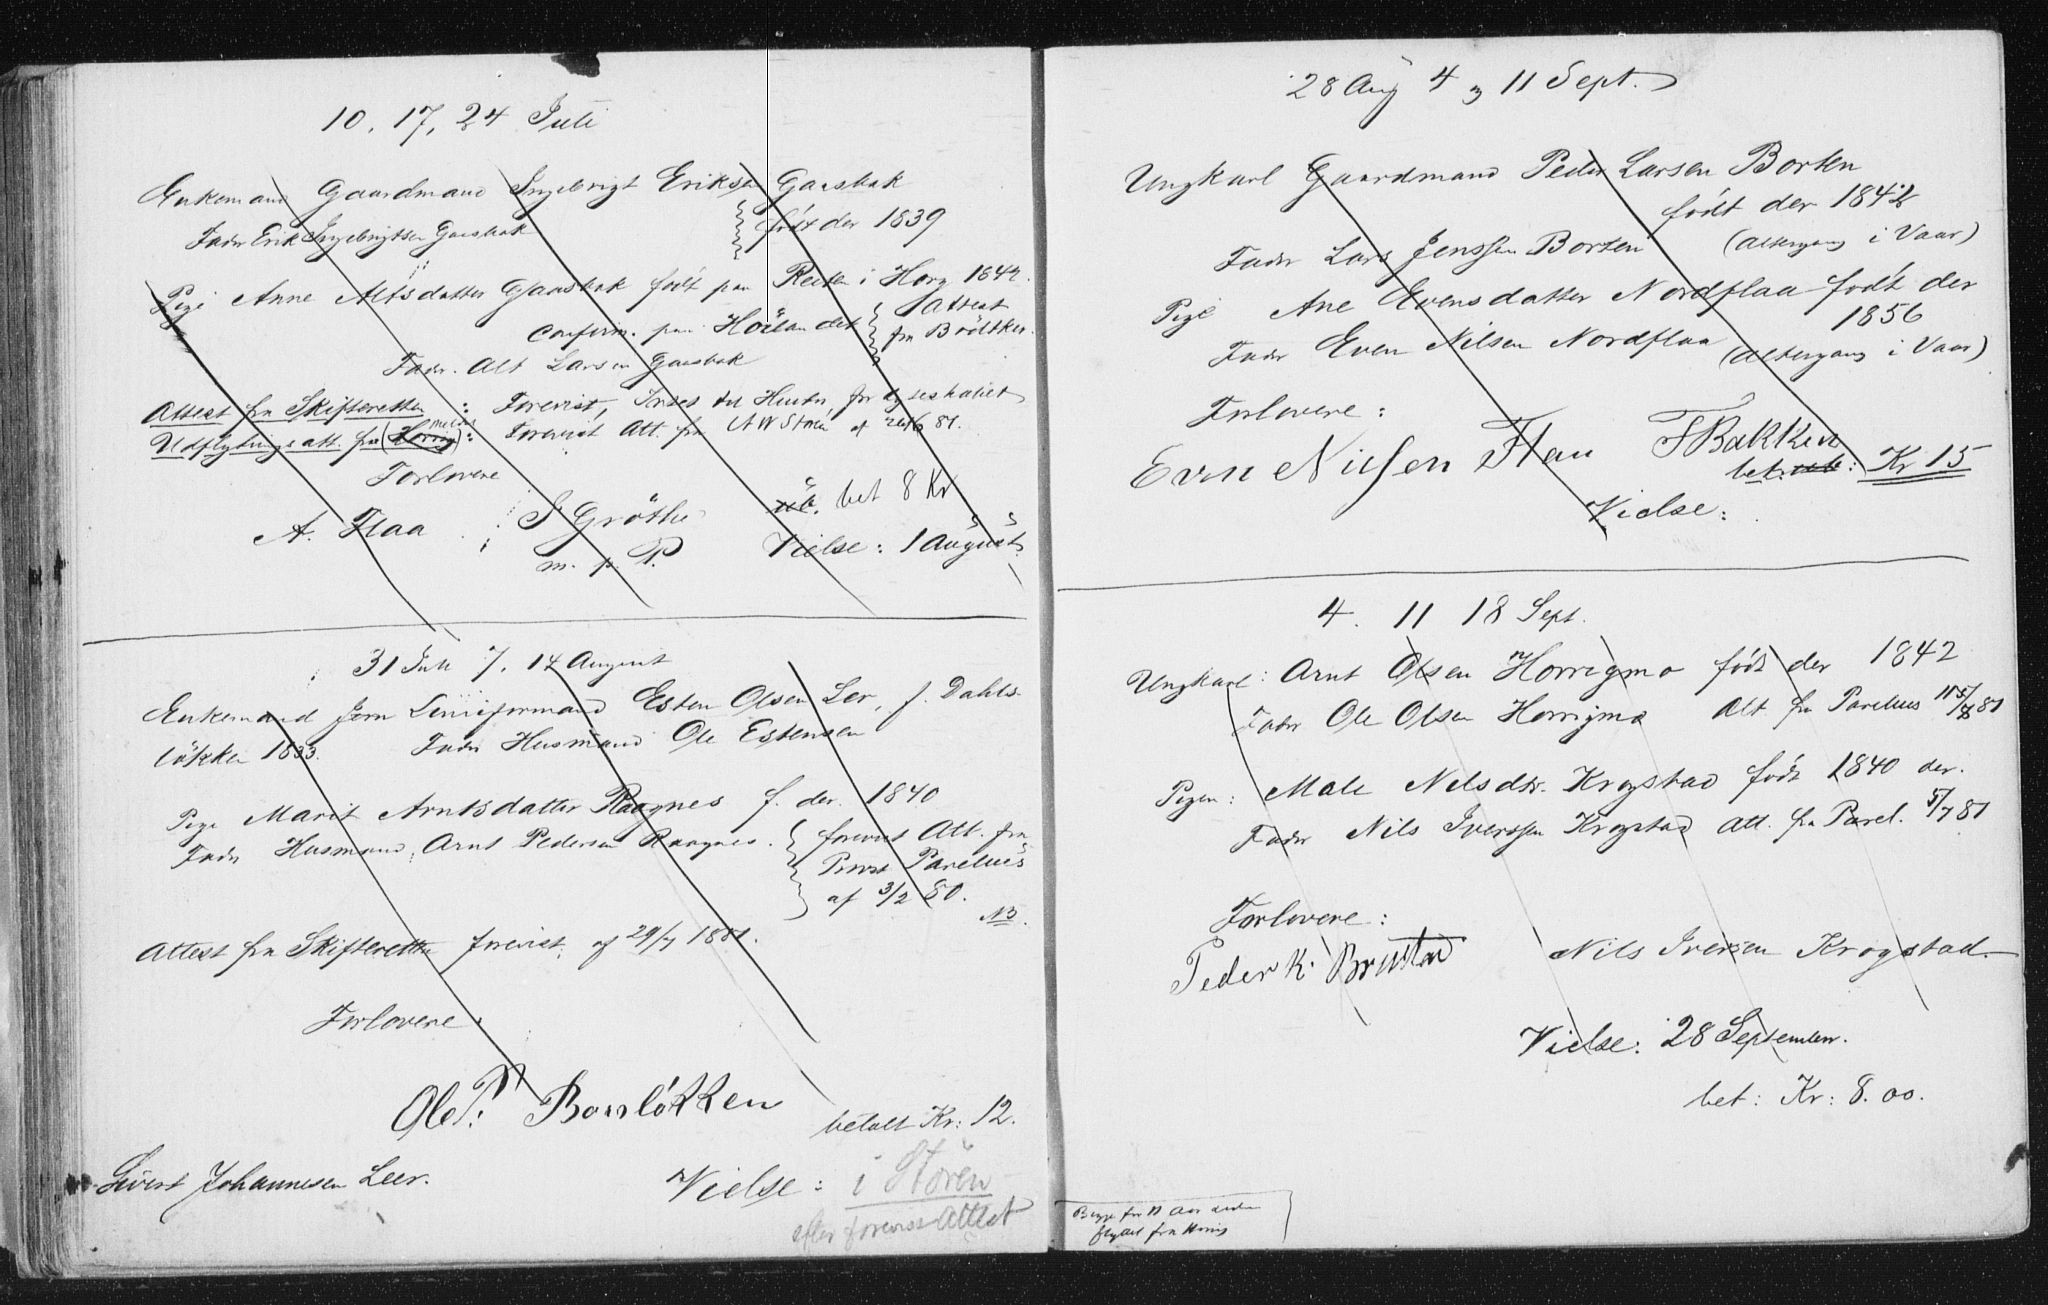 10, 17, 24 Juli
Enkemand Gaardmand Ingebrigt Eriksen Gaasbak
født der 1839
Fader Erik Ingebrigtsen Gaasbak
Pige Anne Altsdatter Gaasbak født paa i Horg 1842.
Confirm. paa Hölandet Attest
fra
Fader. Alt Larsen Gaasbak
Attest fra Skifteretten : Forevist,
Udflytningsatt. fra : Forevist Att. fra af
Forlovere
A. Flaa S Gröthe
m. p. P.
bet 8 Kr
Vielse: 1 August
31 Juli 7. 14 August
Enkemand Jern Linieformand Esten Olsen Ler, f. Dahls-
løkken 1833. Fader Husmand Ole Estensen
Pige Marit Arntsdatter Raagnes f. der. 1840
Fader Husmand Arnt Pedersen Raagnes.
forevist Att. fra
Provst Parelius
af 3/2 80.
NB.
Attest fra Skifteretten forevist, af 29/7 1881.
Forlovere.
Ole P. Bonløkken
betalt Kr: 12.
Sivert Johannesen Leer.
Vielse: i Stören
efter forevist Attest
28 Aug 4 og 11 Sept.
Ungkarl Gaardmand Peder Larsen Borten
født der 1842
Fader Lars Jenssen Borten (Altergang i Vaar)
Pige Ane Evensdatter Nordflaa født der
1856
Fader Even Nilsen Nordflaa (Altergang i Vaar)
Forlovere:
Evn Nilsen Flaa F Bakken
bet. : Kr 15
Vielse:
4. 11 18 Sept.
Ungkarl: Arnt Olsen Horrigmo født der 1842
Fader Ole Olsen Horrigmo Att fra Parelius
Pigen: Male Nelsdtr. Krogstad født 1840 der.
Fader Nils Iverssen Krogstad Att. fra Parel. 5/7 81
Forlovere:
Peder K. Brustad Nils Iversen Krogstad
Vielse: 28 September.
bet: Kr: 8.00.
Begge for Aar siden
flyttet fra